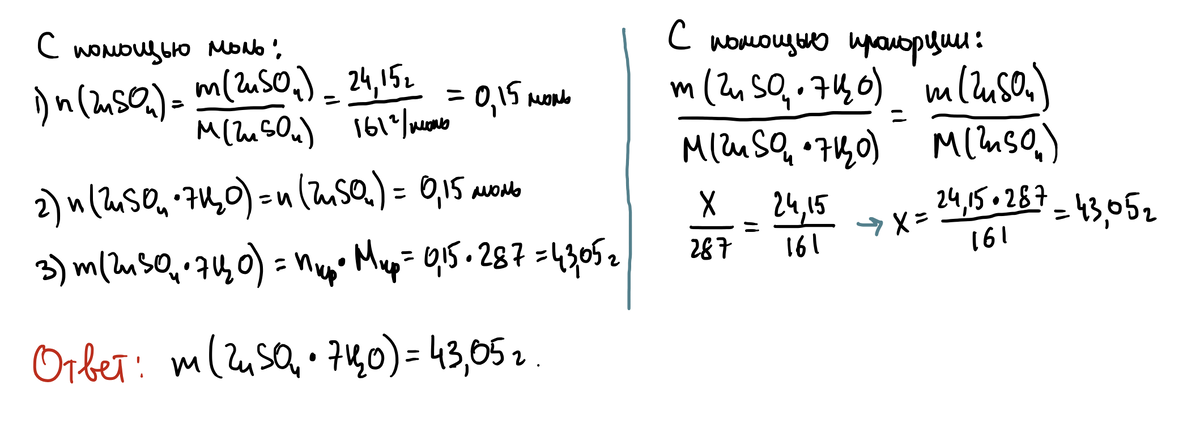 С помощью моль:
1) n(ZnSO₄) = m(ZnSO₄) / M(ZnSO₄) = 24,15г / 161 г/моль = 0,15 моль
2) n(ZnSO₄·7H₂O) = n(ZnSO₄) = 0,15 моль
3) m(ZnSO₄·7H₂O) = nкр · Mкр = 0,15 · 287 = 43,05 г
С помощью пропорции:
m(ZnSO₄·7H₂O) / M(ZnSO₄·7H₂O) = m(ZnSO₄) / M(ZnSO₄)
X / 287 = 24,15 / 161 → X = 24,15 · 287 / 161 = 43,05 г
Ответ: m(ZnSO₄·7H₂O) = 43,05 г.